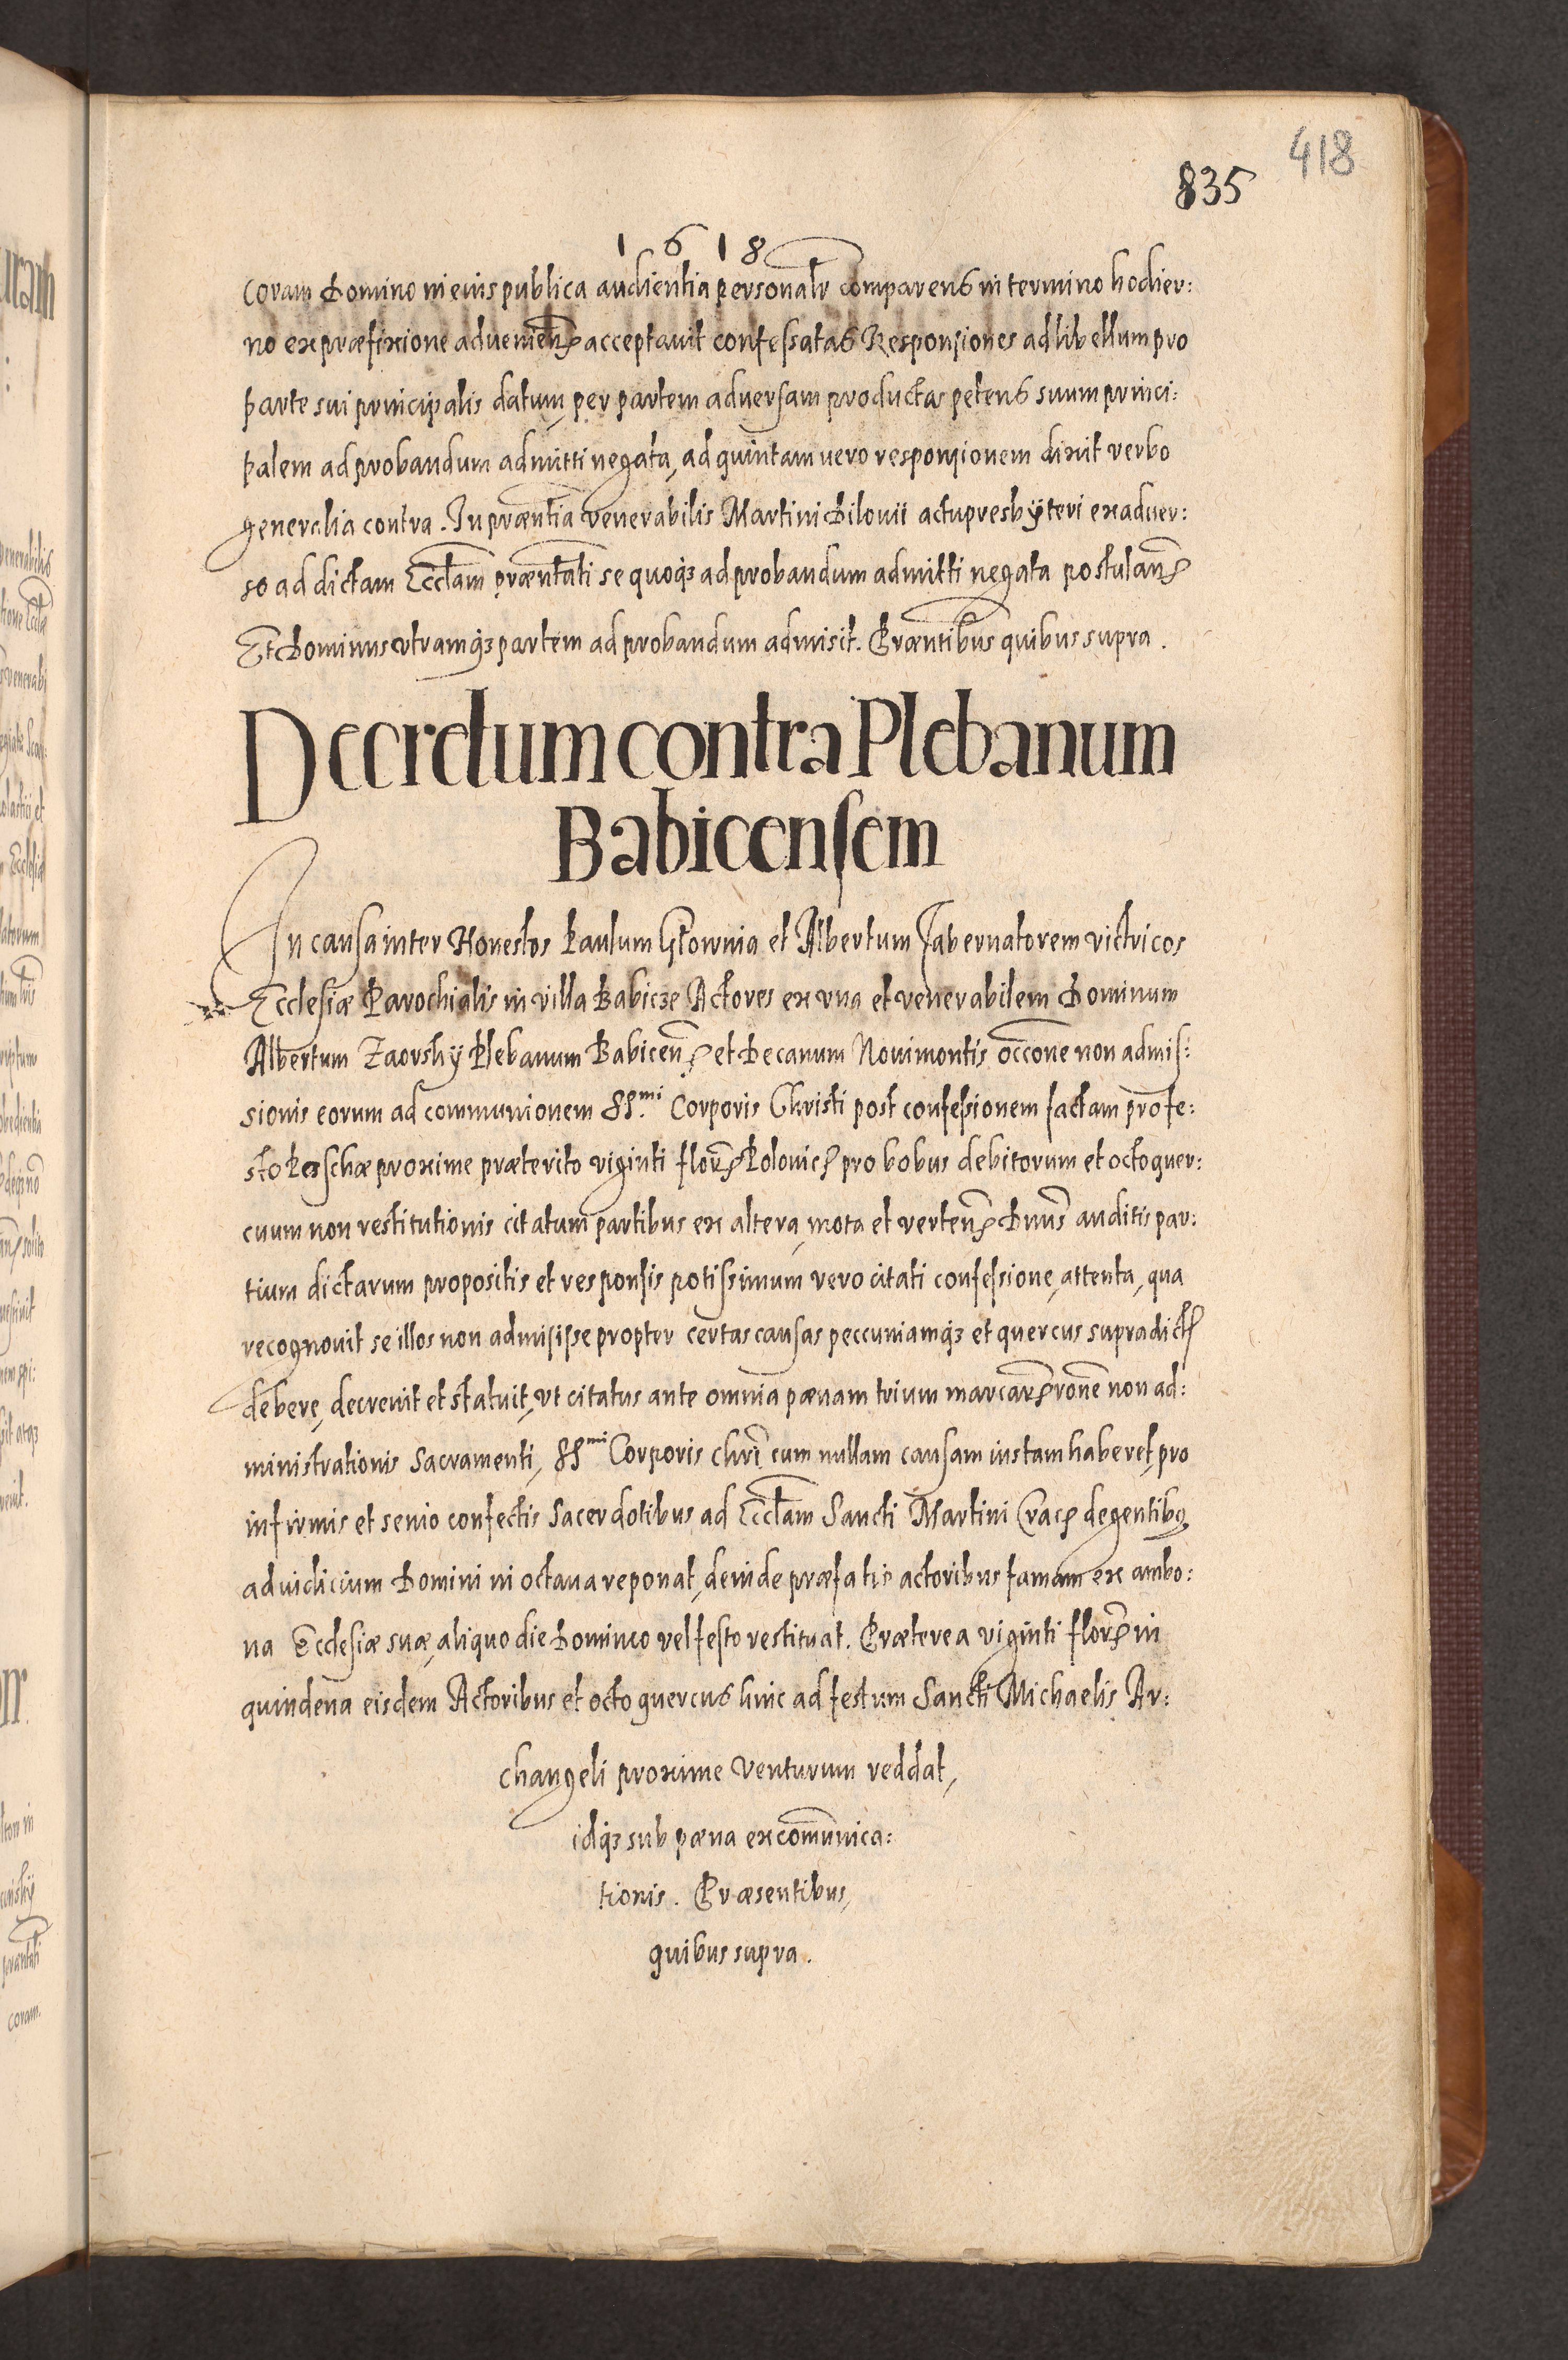 418
835
1618
Coram Domino in eius publica audientia personalr comparens in termino hodier:
no ex præfixione adueniens acceptauit confessatas Responsiones ad libellum pro
parte sui principalis datum, per partem aduersam productas petens suum princi:
palem ad probandum admitti negata, ad quintam uero responsionem dixit verbo
generalia contra. In præntia venerabilis Martini Dilouii actu presbyteri ex aduer:
so ad dictam Eccłam præntati se quoq3 ad probandum admitti negata postulans
Et Dominus vtramq3 partem ad probandum admisit. Præntibus quibus supra.
Decretum contra Plebanum
Babicensem
In causa inter Honestos Paulum Głownia et Albertum Tabernatorem victricos
Ecclesiæ Parochialis in villa Babicze Actores ex vna et venerabilem Dominum
Albertum Zaorsky Plebanum Babicen et Decanum Nouimontis occone non admis:
sionis eorum ad communionem SS.mi Corporis Christi post confessionem factam pro fe:
sto Paschæ proxime præterito viginti flor Polonic pro bobus debitorum et octo quer:
cuum non restitutionis citatum partibus ex altera, mota et verten Dnus auditis par:
tium dictarum propositis et responsis potissimum vero citati confessione, attenta, qua
recognouit se illos non admisisse propter certas causas peccuniamq3 et quercus supradict
debere, decreuit et statuit, vt citatus ante omnia pænam trium marcar rone non ad:
ministrationis Sacramenti, SSmi Corporis chri cum nullam causam iustam haberet, pro
infirmis et senio confectis Sacerdotibus ad Eccłam Sancti Martini Crac degentibq
ad uidicium Domini in octaua reponat, deinde præfatis actoribus famam ex ambo:
na Ecclesiæ suæ, aliquo die Dominico vel festo restituat. Præterea viginti flor in
quindena eisdem Actoribus et octo quercus hinc ad festum Sancti Michaelis Ar:
changeli proxime venturum reddat,
idq3 sub pæna excommunica:
tionis. Præsentibus,
quibus supra.